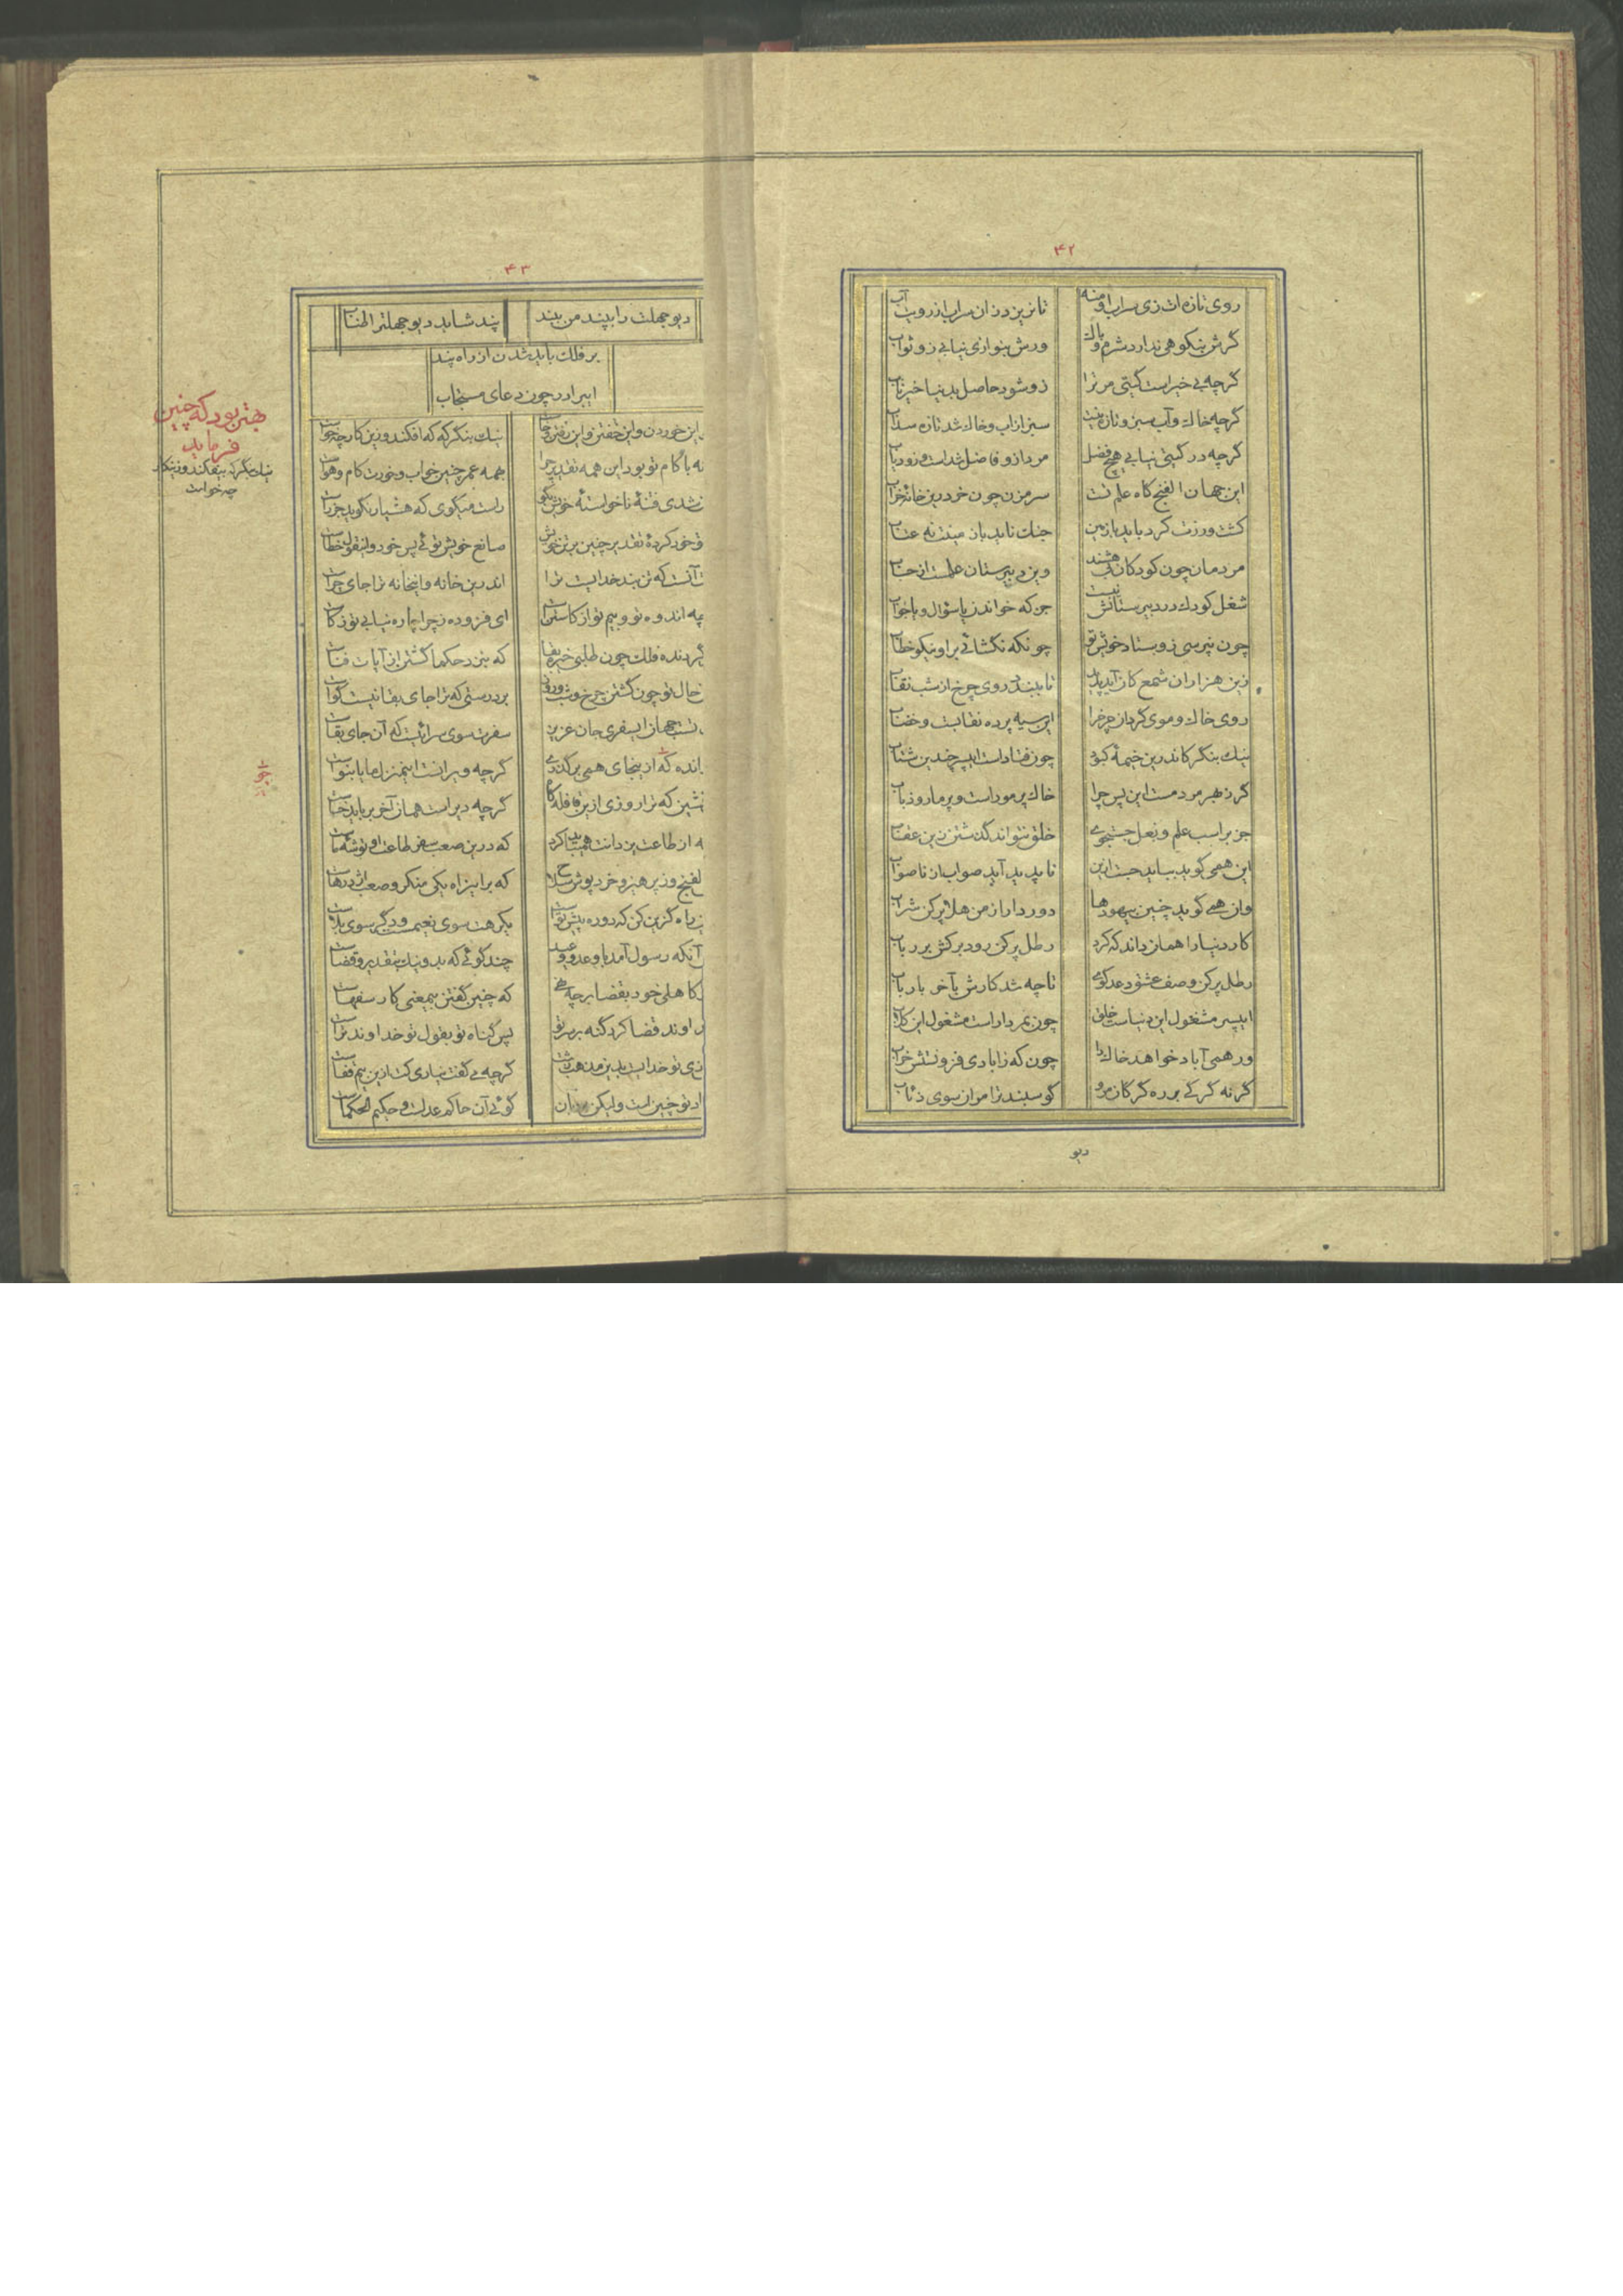 ۴۲
روی تازه‌ات زی سراب او منه تا نریزد زان سراب از رویت آب
گرش بنکوهی ندارد شرم و باک ورش بنوازی نیابی زو ثواب
گرچه بی خیر است گیتی مر ترا زو شود حاصل بدنیا خیر ناب
گرچه خاک و آب سبز و تازه نیست سبز از آب و خاک شد تازه سداب
گرچه در گیتی نیابی هیچ فضل مرد ازو فاضل شداست و زودیاب
این جهان الفنج گاه علم تست سر مزن چون خر درین خانه خراب
کشت ورزت کرد باید بازمین جنگ ناید باز مینت نه عتاب
مردمان چون کودکان هشند وین دبیرستان علمست از حساب
شغل کودک در دبیرستانش نیست جز که خواندن یا سؤال و یا جواب
چون نپرسی ز وستاد خویش تو چونکه نگشائی براو نیکو خطاب
زین هزاران شمع کان آید پدید تا ببندد روی چرخ از شب نقاب
روی خاک و موی گردان چرخ را این سیه پرده نقابست و خضاب
نیک بنگر کاندرین خیمهٔ کبود چون فتاداست ایپسر چندین شتاب
گر ز بهر مردمست این پس چرا خاک پر مور است و پر مار و ذباب
جز براسب علم و بغل جستجوی خلق نتواند گذشتن زین عقاب
این همی گوید بباید جست ازین تا پدید آید صواب از ناصواب
وان همی گوید چنین بیهودها دور دار از من هلا پر کن شراب
کار دنیا را همان داند که کرد رطل پر کن رود برکش بر رباب
رطل پر کن وصف عشق دعد گوی تا چه شد کارش بآخر با رباب
ایپسر مشغول این دنیاست خلق چون بمردار است مشغول این کلاب
ور همی آباد خواهد خاک را چون که زابادی فزونتش خراب
گرنه گرگی بر ره گرگان مرو گوسبندت را مران سوی ذئاب
دیو
۴۳
دیو جهلت را بپند من ببند پند شاید دیو جهلت را طناب
بر فلک باید شدن از راه پند
ای برادر چون دعای مستجاب
این خوردن و این خفتن و این رفتن و خاست نیک بنگر که که افکند و زین کار چه خواست
نه بکام تو بود این همه تقدیر چرا همه عمر چنین خواب و خورت کام و هواست
شدی فتنهٔ ناخواستهٔ خویش بگو راست میگوی که هشیار نگوید جز راست
خود کردهٔ تقدیر چنین بر تن خویش صانع خویش توئی پس خود و اینقول خطاست
آنست که تن بند خدایست ترا اندرین خانه و اینخانه ترا جای چراست
چه اندوه تو و بیم تو از کاستن است ای فزوده ز چرا چاره نیابی تو ز کاست
گردنده فلک چون طلبی خیره بقا که بنزد حکما گشتن از آیات فناست
حال تو چون گشتن چرخ و شب و روز بر درستی که ترا جای بقا نیست گواست
جهان ایسفری جان عزیز سفرت سوی سرائیست که آن جای بقاست
که ازینجای همی برگذری گرچه ویرانست اینمنزل ما یا بنواست
که ترا روزی ازین قافله گاه گرچه دیر است همان آخر برباید خاست
از طاعت یزدانت همی باید کرد که درین صعب سفر طاعت او توشهٔ ماست
الفنج وز پرهیز و خرد پوش سلاح که براینراه یکی منکر و صعب اژدرهاست
راه گزین کن که دو ره پیش تو است یکرهت سوی نعیمست و دگر سوی بلاست
آنکه رسول آمد با وعد و وعید چند گوئی که بد و نیک بتقدیر و قضاست
کاهلی خود بقضا بر چه نهی که چنین گفتن بیمعنی کار سفهاست
خداوند قضا کرد گنه بر سر تو پس گناه تو بقول تو خداوند تراست
زی تو خدایست بدین مذهب زشت گرچه می گفت نیاری کت ازین بیم قفاست
تو چنین است ولیکن گوئی آن حاکم عدلست و حکیم الحکماست
بهتر بود که چنین
فرماید
نیک بنگر که بیفکند و زینکار
چه خواست